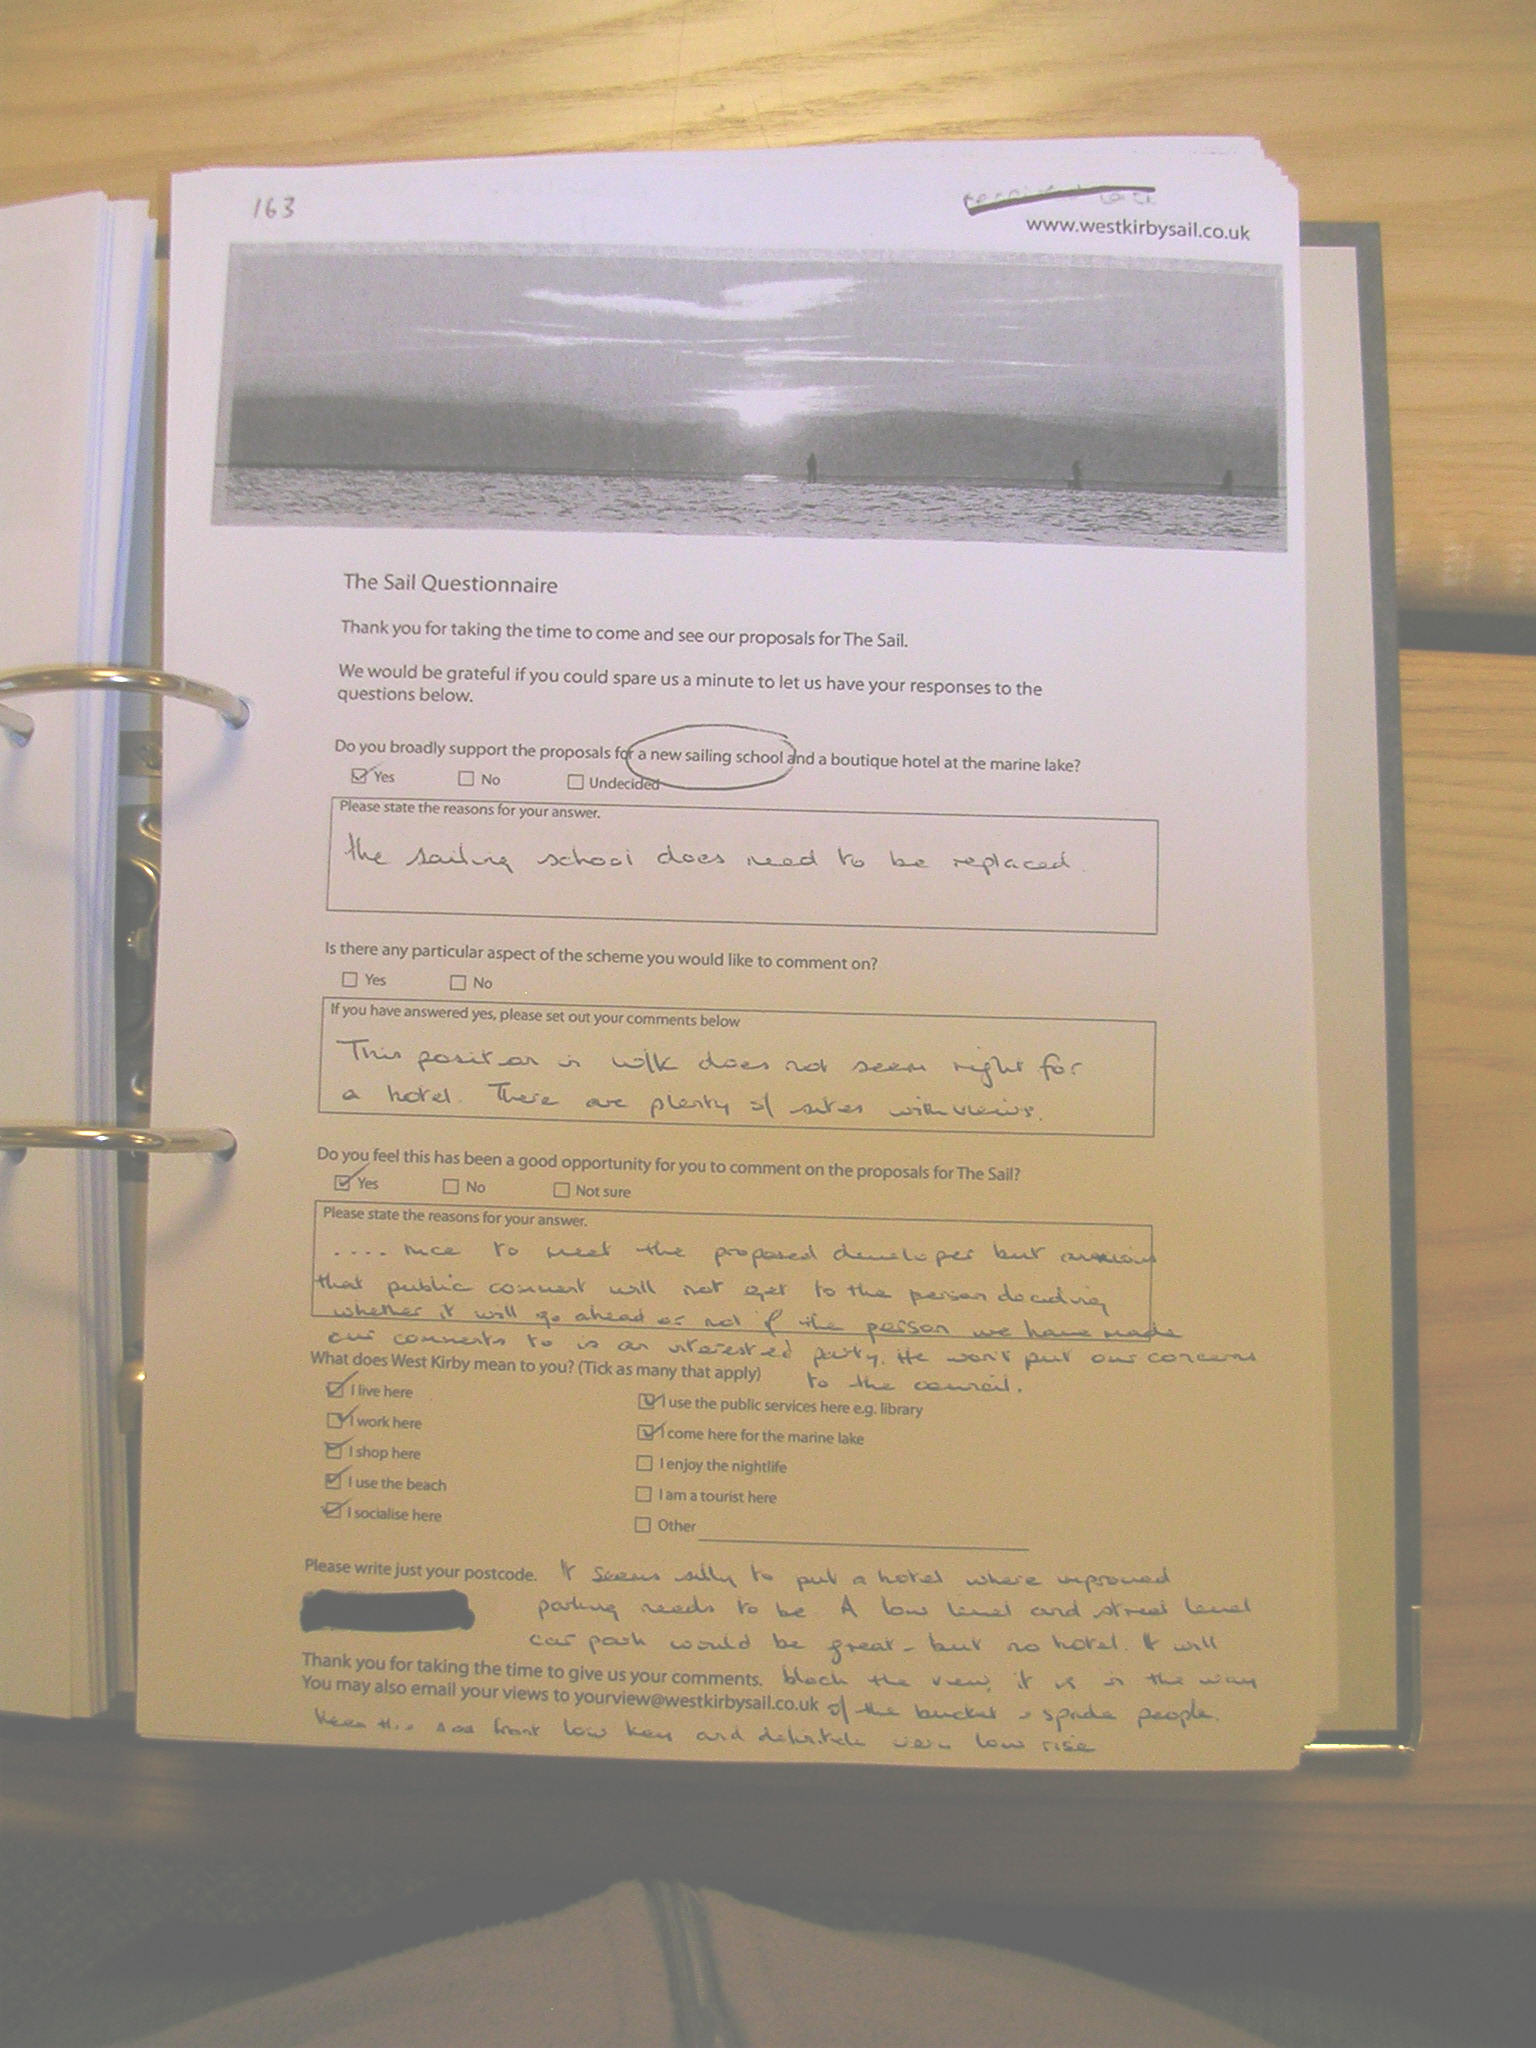 163
www.westkirbysail.co.uk
The Sail Questionnaire
Thank you for taking the time to come and see our proposals for The Sail.
We would be grateful if you could spare us a minute to let us have your responses to the
questions below.
Do you broadly support the proposals for a new sailing school and a boutique hotel at the marine lake?
Yes No Undecided
Please state the reasons for your answer.
the sailing school does need to be replaced.
Is there any particular aspect of the scheme you would like to comment on?
Yes No
If you have answered yes, please set out your comments below
This position in W/K does not seem right for
a hotel. There are plenty of sites with views.
Do you feel this has been a good opportunity for you to comment on the proposals for The Sail?
Yes No Not sure
Please state the reasons for your answer.
.... nice to meet the proposed developer but anxious
that public comment will not get to the person deciding
whether it will go ahead or not if the person we have made
our comments to is an interested party. He won't put our concerns
to the council.
What does West Kirby mean to you? (Tick as many that apply)
I live here
I work here
I shop here
I use the beach
I socialise here
I use the public services here e.g. library
I come here for the marine lake
I enjoy the nightlife
I am a tourist here
Other
Please write just your postcode.
It seems silly to put a hotel where improved
parking needs to be. A low level and street level
car park would be great - but no hotel. It will
block the view, it is in the way
of the bucket & spade people.
Keep the sea front low key and definitely very low rise
Thank you for taking the time to give us your comments.
You may also email your views to yourview@westkirbysail.co.uk